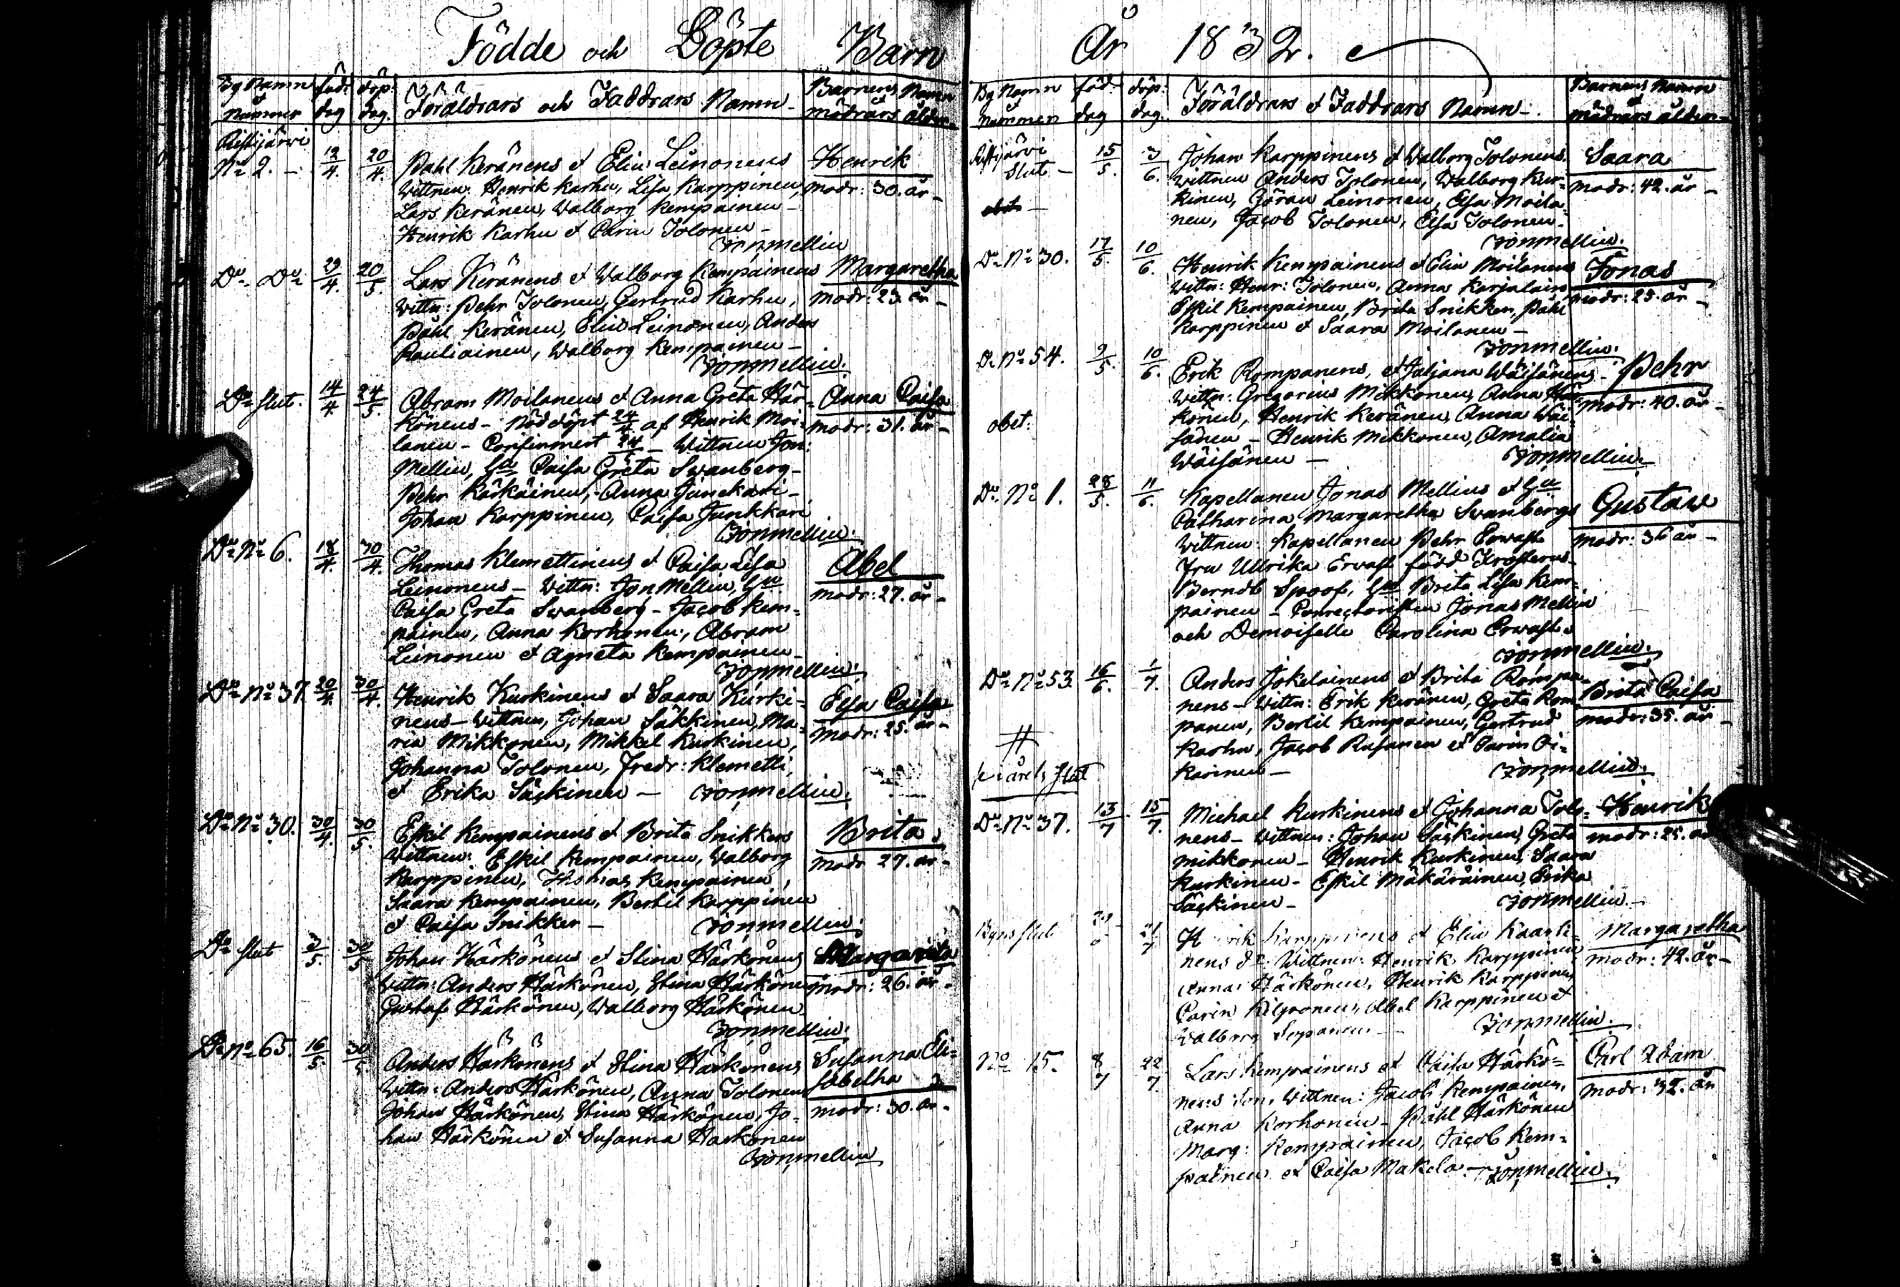 Födde och Döpte Barn
By Namn
och
Nummer
föd:
dag
döp:
dag.
Föräldrars och Faddrars Namn -
Barnens Namn
mödrars ålder -
Ristijärvi
No 2. -
12/4.
20/4.
Påhl Keränens et Elin Leinonens
Wittnen. Henrik Karhu, Lisa Karppinen,
Lars Keränen, Walborg Kempainen -
Henrik Karhu et Carin Tolonen -
Jonmellin
Henrik
modr: 30. år -
Do Do
29/4.
20/5.
Lars Keränens et Walborg Kempainens
Wittn: Pehr Tolonen, Gertrud Karhu,
Påhl Keränen, Elin Leinonen, Anders
Pauliainen, Walborg Kempainen -
Jonmellin.
Margaretha
modr: 23. år -
Do slut.
14/4.
24/5.
Abram Moilanens et Anna Greta Här-
könens - Nöddöpt 24/4 af Henrik Moi-
lanen - Confirmert 24/5 - Wittnen Jon:
Mellin, Fru Caisa Greta Swanberg -
Pehr Kärkäinen, Anna Junckari -
Johan Karppinen, Caisa Junkkari
Jonmellin.
Anna Caisa
modr: 31. år -
Do No 6.
18/4.
30/4.
Thomas Klemettinens et Caisa Lisa
Leinonens - Wittn: Jon Mellin, Fru
Caisa Greta Swanberg - Jacob Kem-
painen, Anna Korhonen, Abram
Leinonen et Agneta Kempainen -
Jonmellin.
Abel
modr: 27. år -
Do No 37.
20/4.
30/4.
Henrik Kurkinens et Saara Kurki-
nens - Wittnen, Johan Säkkinen, Ma-
ria Mikkonen, Mikkel Kurkinen,
Johanna Tolonen, Fredr: Klemetti,
et Erika Säskinen - Jonmellin.
Elsa Caisa
modr: 25. år -
Do No 30.
30/4.
30/5.
Eskil Kempainens et Brita Snikkers
Wittnen: Eskil Kempainen, Walborg
Karppinen, Thomas Kempainen,
Saara Kempainen, Bertil Karppinen
et Caisa Snikker - Jonmellin.
Brita.
modr 27. år -
Do slut
2/5.
30/5
Johan Härkönens et Stina Härkönens
Wittn: Anders Härkönen, Stina Härkönen,
Gustaf Härkönen, Walborg Härkönen
Jonmellin.
Margareta
modr: 26. år -
Do No 65.
16/5.
30/5
Anders Härkönens et Stina Härkönens
Wittn: Anders Härkönen, Anna Tolonen
Johan Härkönen, Stina Härkönen, Jo-
han Härkönen et Susanna Härkönen
Jonmellin
Susanna Eli-
sabetha
modr: 30. år -
År 1832.
By Namn
Nummer
föd:
dag
döp:
dag.
Föräldrars et Faddrars Namn -
Barnens Namn
et
mödrars ålder -
Ristijärvi
slut. -
15/5.
3/6.
Johan Karppinens et Walborg Tolonens
Wittnen Anders Tolonen, Walborg Kur-
kinen, Göran Leinonen, Elsa Moila-
nen, Jacob Tolonen, Elsa Tolonen -
Jonmellin.
Saara
modr: 42. år -
Do No 30.
17/5.
10/6.
Henrik Kempainens et Elin Moilanens
Wittn: Henr: Tolonen, Anna Karjalain
Eskil Kempainen, Brita Snikker, Påhl
Karppinen et Saara Moilanen -
Jonmellin.
Jonas
modr: 25. år -
Do No 54.
9/5.
10/6.
obet.
Erik Rompanens, et Juljana Wäisänens -
Wittn: Gregorius Mikkonen, Anna Här-
könen, Henrik Keränen, Anna Wäi-
sänen - Henrik Mikkonen, Amalia
Wäisänen - Jonmellin.
Pehr
modr: 40. år -
Do No 1.
28/5.
11/6.
Kapellanen Jonas Mellins et Fru
Catharina Margaretha Swanbergs
Wittnen: Kapellanen Pehr Ervast
Fru Ullrika Ervast född
Berndt Spoof, Fru Brita Lisa Kem-
painen - Jonas Mellin
och Demoiselle Carolina Ervast.
Jonmellin.
Gustav
modr: 36 år -
Do No 53
16/6.
1/7.
Anders Jokelainens et Brita Rompa-
nens - Wittn: Erik Keränen, Greta Rom
panen, Bertil Kempainen, Gertrud
Karhu, Jacob Rusanen et Carin Oi-
karinen - Jonmellin.
Brita Caisa
modr: 35. år -
#
årets slut
Do No 37.
13/7
15/7.
Michael Kurkinens et Johanna Tolo-
nens - Wittnen: Johan Säskinen, Greta
Mikkonen - Henrik Kurkinen, Saara
Kurkinen - Eskil Mäkäräinen, Erika
Säskinen - Jonmellin -
Henrik
modr: 25. år
Byns slut
21/7
Henrik Karppinens et Elin Kaarti-
nens Wittnen: Henrik Karppinen
Anna Härkönen, Henrik Karppinen,
Carin Kilponen, Abel Karppinen et
Walborg Seppänen - Jonmellin.
Margaretha
modr: 42. år -
No 15.
8/7
22/7.
Lars Kempainens et Caisa Härkö-
nens son, Wittnen: Jacob Kempainen,
Anna Korhonen - Påhl Härkönen
Marg: Kempainen, Jacob Kem-
painen et Caisa Makela - Jonmellin.
Carl Adam
modr: 32. år